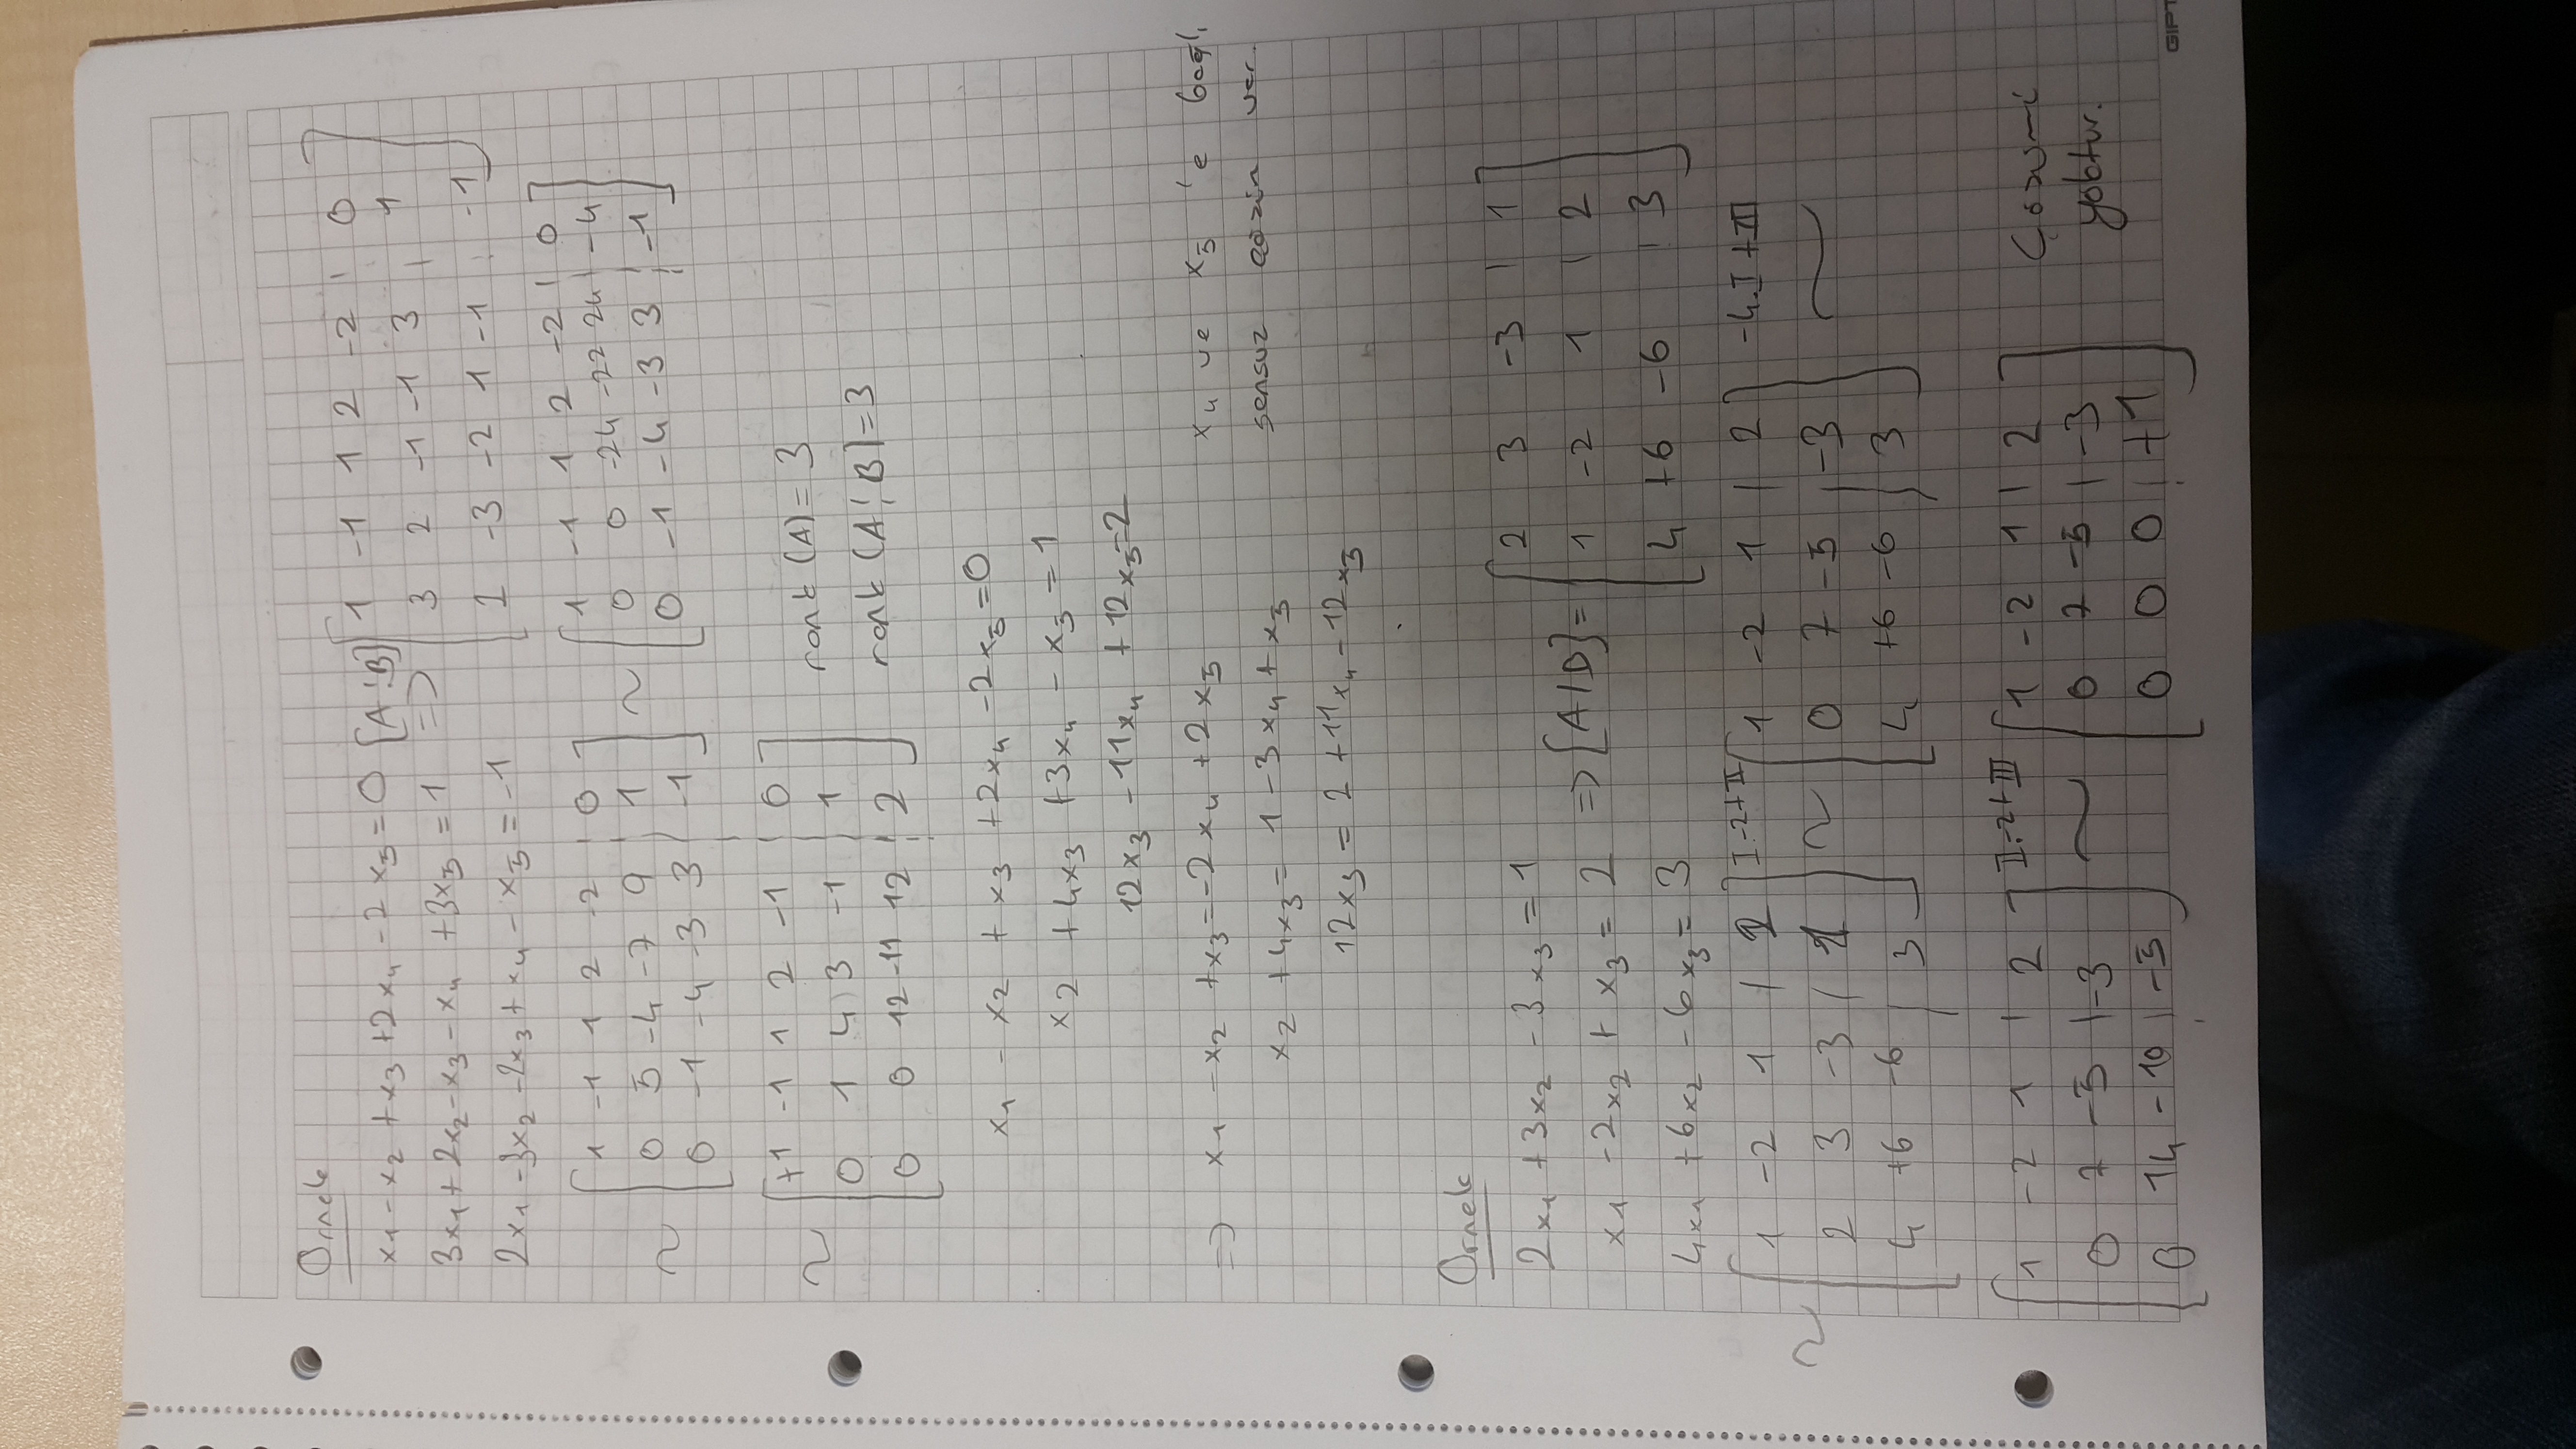 Örnek
x₁ - x₂ + x₃ + 2x₄ - 2x₅ = 0 [A¦B]
3x₁ + 2x₂ - x₃ - x₄ + 3x₅ = 1 =>
2x₁ - 3x₂ - 2x₃ + x₄ - x₅ = -1
1 -1 1 2 -2 ¦ 0
3 2 -1 -1 3 ¦ 1
2 -3 -2 1 -1 ¦ -1
~
1 -1 1 2 -2 ¦ 0
0 5 -4 -7 9 ¦ 1
0 -1 -4 -3 3 ¦ -1
~
1 -1 1 2 -2 ¦ 0
0 0 -24 -22 24 ¦ -4
0 -1 -4 -3 3 ¦ -1
~
+1 -1 1 2 -1 ¦ 0
0 1 4 3 -1 ¦ 1
0 0 12 -11 12 ¦ 2
rank (A) = 3
rank (A¦B] = 3
x₁ - x₂ + x₃ + 2x₄ - 2x₅ = 0
x₂ + 4x₃ + 3x₄ - x₅ = 1
12x₃ - 11x₄ + 12x₅ = 2
=> x₁ - x₂ + x₃ = -2x₄ + 2x₅
x₂ + 4x₃ = 1 - 3x₄ + x₅
12x₃ = 2 + 11x₄ - 12x₅
x₄ ve x₅ 'e bağlı
sonsuz çözüm var.
Örnek
2x₁ + 3x₂ - 3x₃ = 1
x₁ - 2x₂ + x₃ = 2 => [A|B] =
4x₁ + 6x₂ - 6x₃ = 3
2 3 -3 | 1
1 -2 1 | 2
4 +6 -6 | 3
~
1 -2 1 | 2
2 3 -3 | 1
4 +6 -6 | 3
I.-2+II
~
1 -2 1 | 2
0 7 -5 | -3
4 +6 -6 | 3
-4.I + III
~
1 -2 1 | 2
0 7 -5 | -3
0 14 -10 | -5
II.-2+III
~
1 -2 1 | 2
0 7 -5 | -3
0 0 0 | +1
Çözümü
yoktur.
GIPT